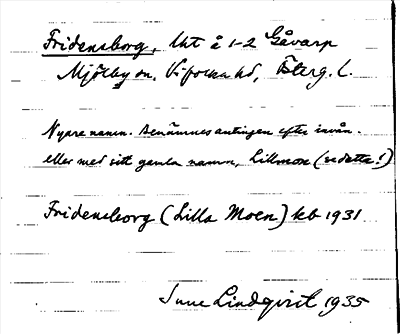 Fridensborg, lht å 1-2 Gåvarp
Mjölby sn. Vifolka hd, Österg. l.
Nyare namn. Benämnes antingen efter invån.
eller med sitt gamla namn, Lillmon (se detta!)
Fridensborg (Lilla Moen) kb 1931
Sune Lindqvist 1935